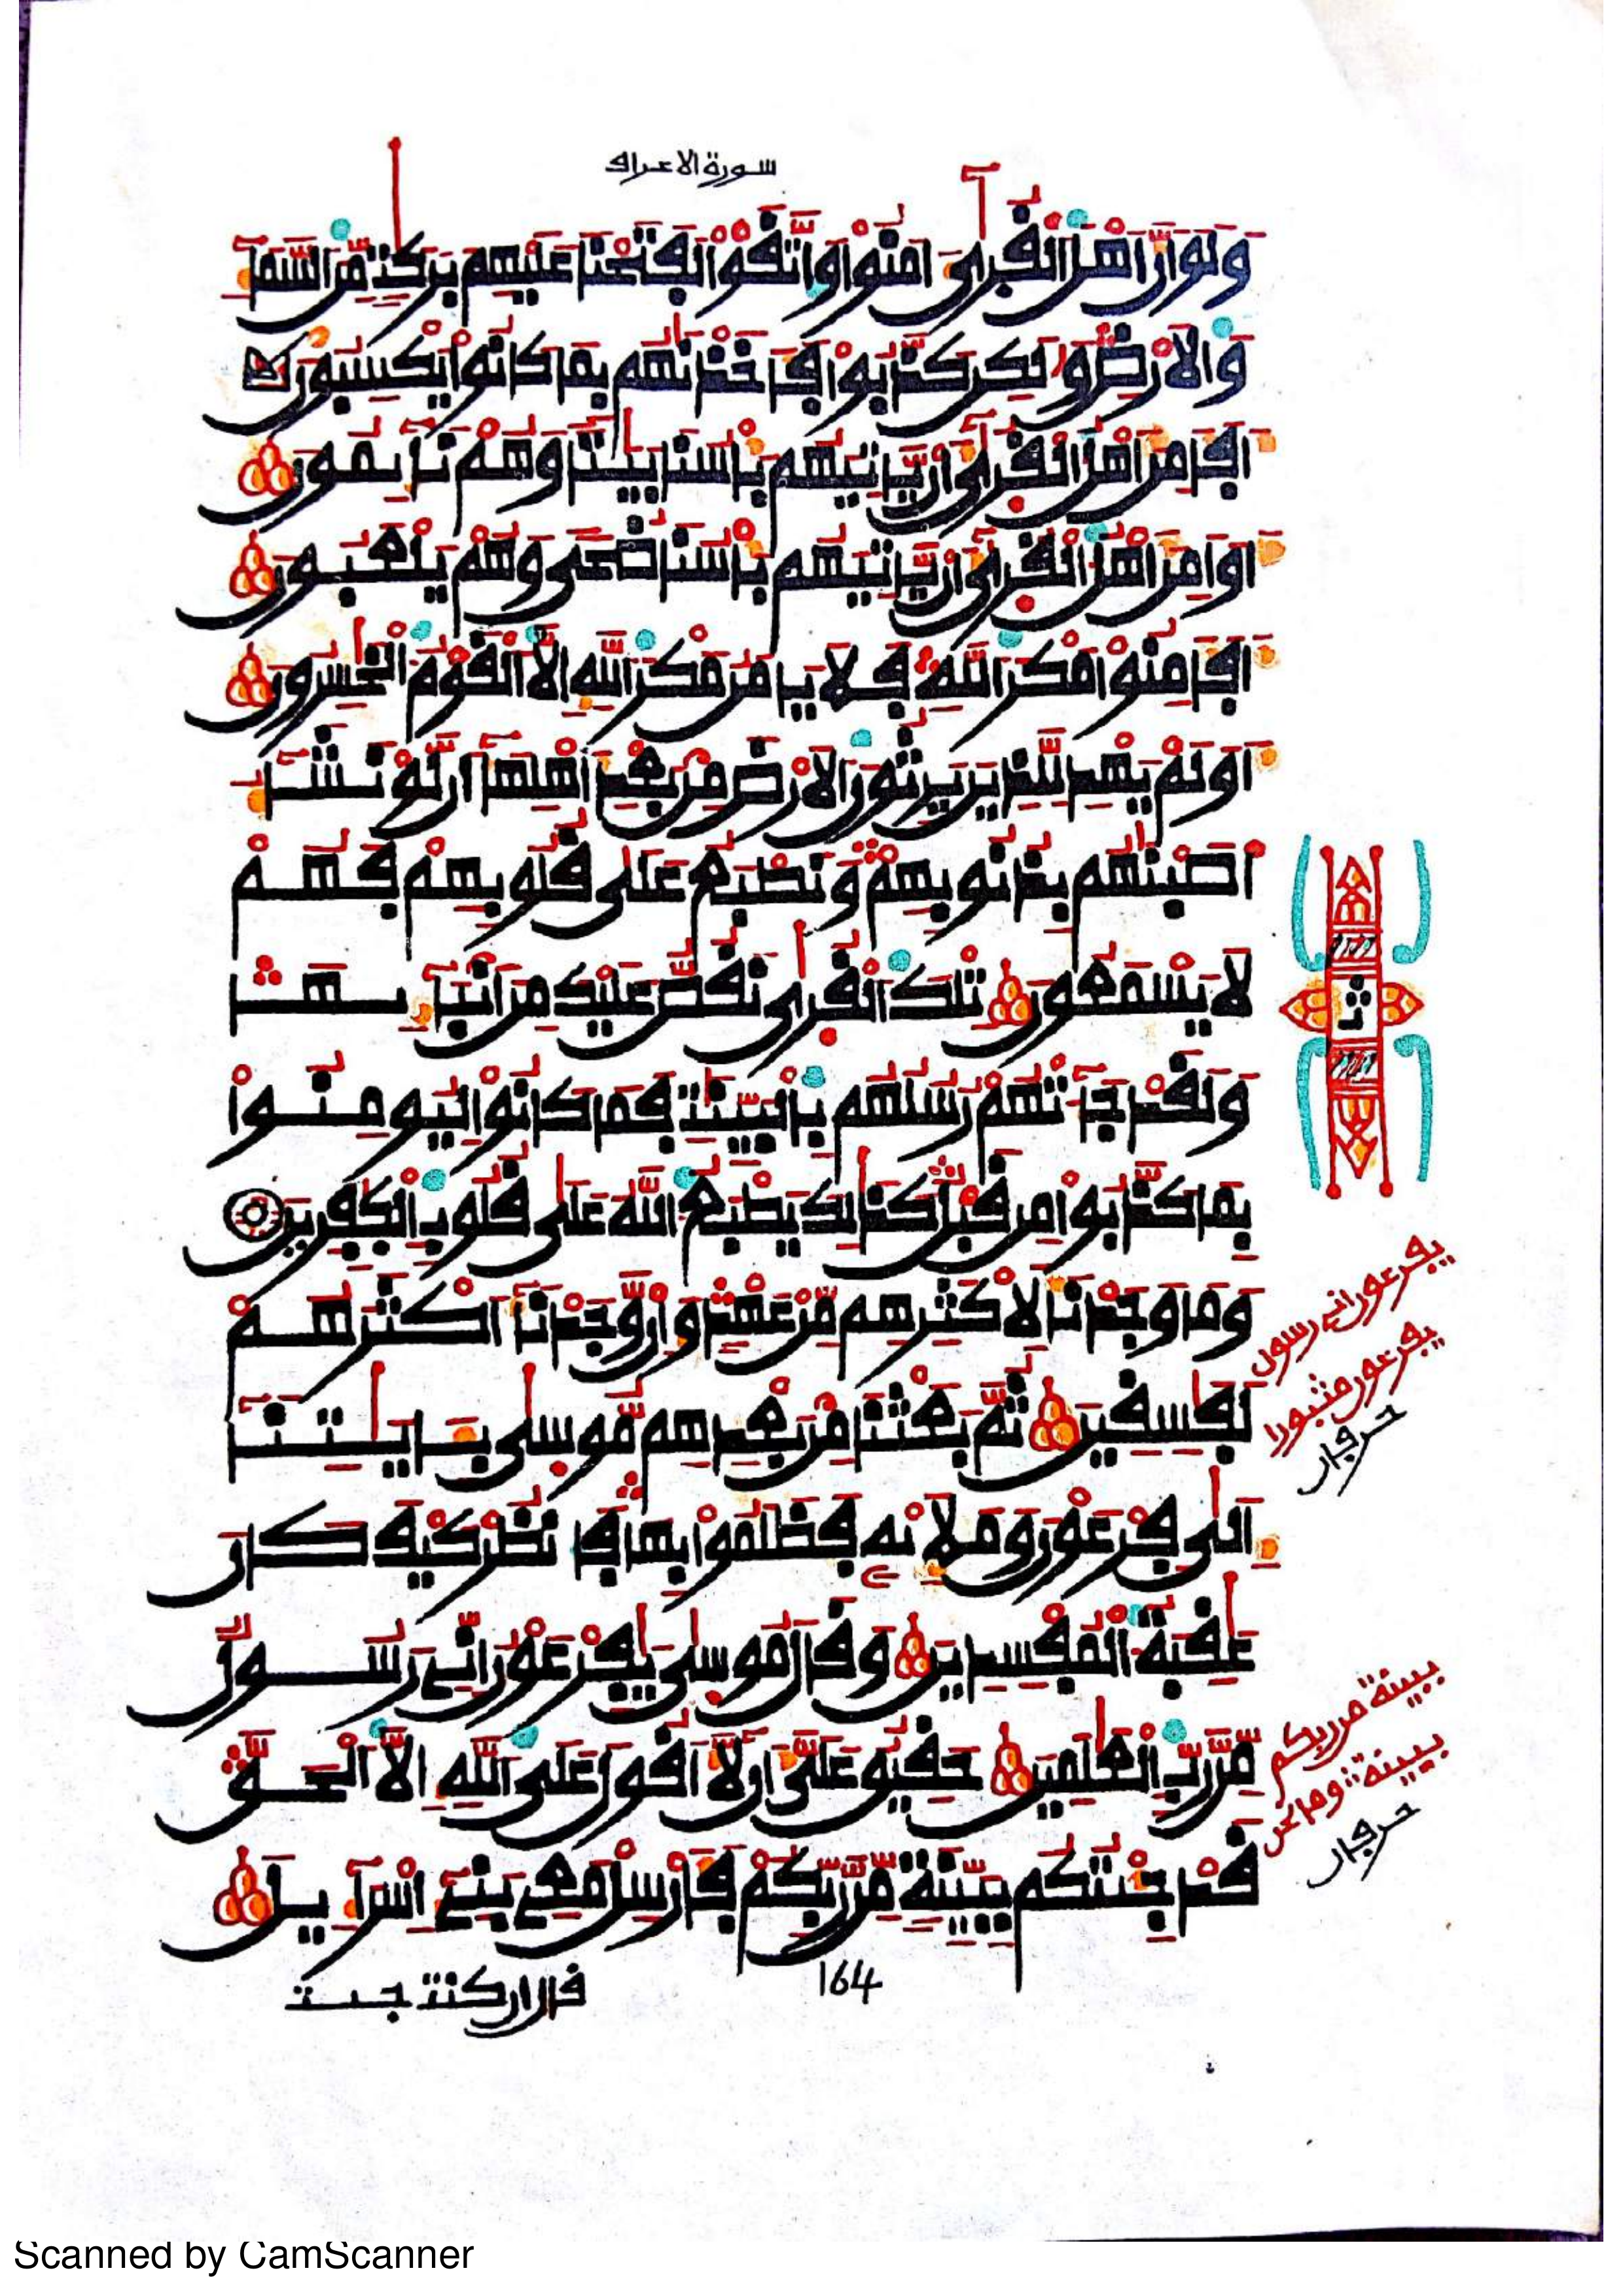 سورة الاعراف
وَلَوَ اَنَّ أَهْلَ ٱلْقُر۪ىٰٓ ءَامَنُواْ وَٱتَّقَوْاْ لَفَتَحْنَا عَلَيْهِم بَرَكَٰتٖ مِّنَ ٱلسَّمَآءِ
وَٱلَارْضِ وَلَٰكِن كَذَّبُواْ فَأَخَذْنَٰهُم بِمَا كَانُواْ يَكْسِبُونَ
أَفَأَمِنَ أَهْلُ ٱلْقُر۪ىٰٓ أَنْ يَّاتِيَهُم بَأْسُنَا بَيَٰتاٗ وَهُمْ نَآئِمُونَ
أَوَ اَمِنَ أَهْلُ ٱلْقُر۪ىٰٓ أَنْ يَّاتِيَهُم بَأْسُنَا ضُحىٗ وَهُمْ يَلْعَبُونَ
أَفَأَمِنُواْ مَكْرَ ٱللَّهِ فَلَا يَامَنُ مَكْرَ ٱللَّهِ إِلَّا ٱلْقَوْمُ ٱلْخَٰسِرُونَ
أَوَلَمْ يَهْدِ لِلَّذِينَ يَرِثُونَ ٱلَارْضَ مِنۢ بَعْدِ أَهْلِهَآ أَن لَّوْ نَشَآءُ
اَصَبْنَٰهُم بِذُنُوبِهِمْ وَنَطْبَعُ عَلَىٰ قُلُوبِهِمْ فَهُمْ
لَا يَسْمَعُونَ تِلْكَ ٱلْقُر۪ىٰ نَقُصُّ عَلَيْكَ مِنَ اَنۢبَآئِهَا
وَلَقَدْ جَآءَتْهُمْ رُسُلُهُم بِٱلْبَيِّنَٰتِ فَمَا كَانُواْ لِيُومِنُواْ
بِمَا كَذَّبُواْ مِن قَبْلُ كَذَٰلِكَ يَطْبَعُ ٱللَّهُ عَلَىٰ قُلُوبِ ٱلْكٰ۪فِرِينَ
وَمَا وَجَدْنَا لِأَكْثَرِهِم مِّنْ عَهْدٖ وَإِنْ وَّجَدْنَآ أَكْثَرَهُمْ
لَفَٰسِقِينَ ثُمَّ بَعَثْنَا مِنۢ بَعْدِهِم مُّوس۪ىٰ بِـَٔايَٰتِنَآ
إِلَىٰ فِرْعَوْنَ وَمَلَإِيْهِۦ فَظَلَمُواْ بِهَا فَٱنظُرْ كَيْفَ كَانَ
عَٰقِبَةُ ٱلْمُفْسِدِينَ وَقَالَ مُوس۪ىٰ يَٰفِرْعَوْنُ إِنِّے رَسُولٞ
مِّن رَّبِّ ٱلْعَٰلَمِينَ حَقِيقٌ عَلَيَّ أَن لَّآ أَقُولَ عَلَى ٱللَّهِ إِلَّا ٱلْحَقَّ
قَدْ جِئْتُكُم بِبَيِّنَةٖ مِّن رَّبِّكُمْ فَأَرْسِلْ مَعِے بَنِےٓ إِسْرَآءِيلَ
164
قال ان كنت جئت
ثمن
يفرعون اني رسول
يفرعون مثبورا
حرفان
ببينة من ربكم
ببينة وما نحن
حرفان
Scanned by CamScanner